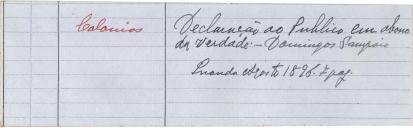 Colonias
Declaração ao Publico em abono
da Verdade - Domingos Sampaio
Luanda Agosto 1896. 7 pag.